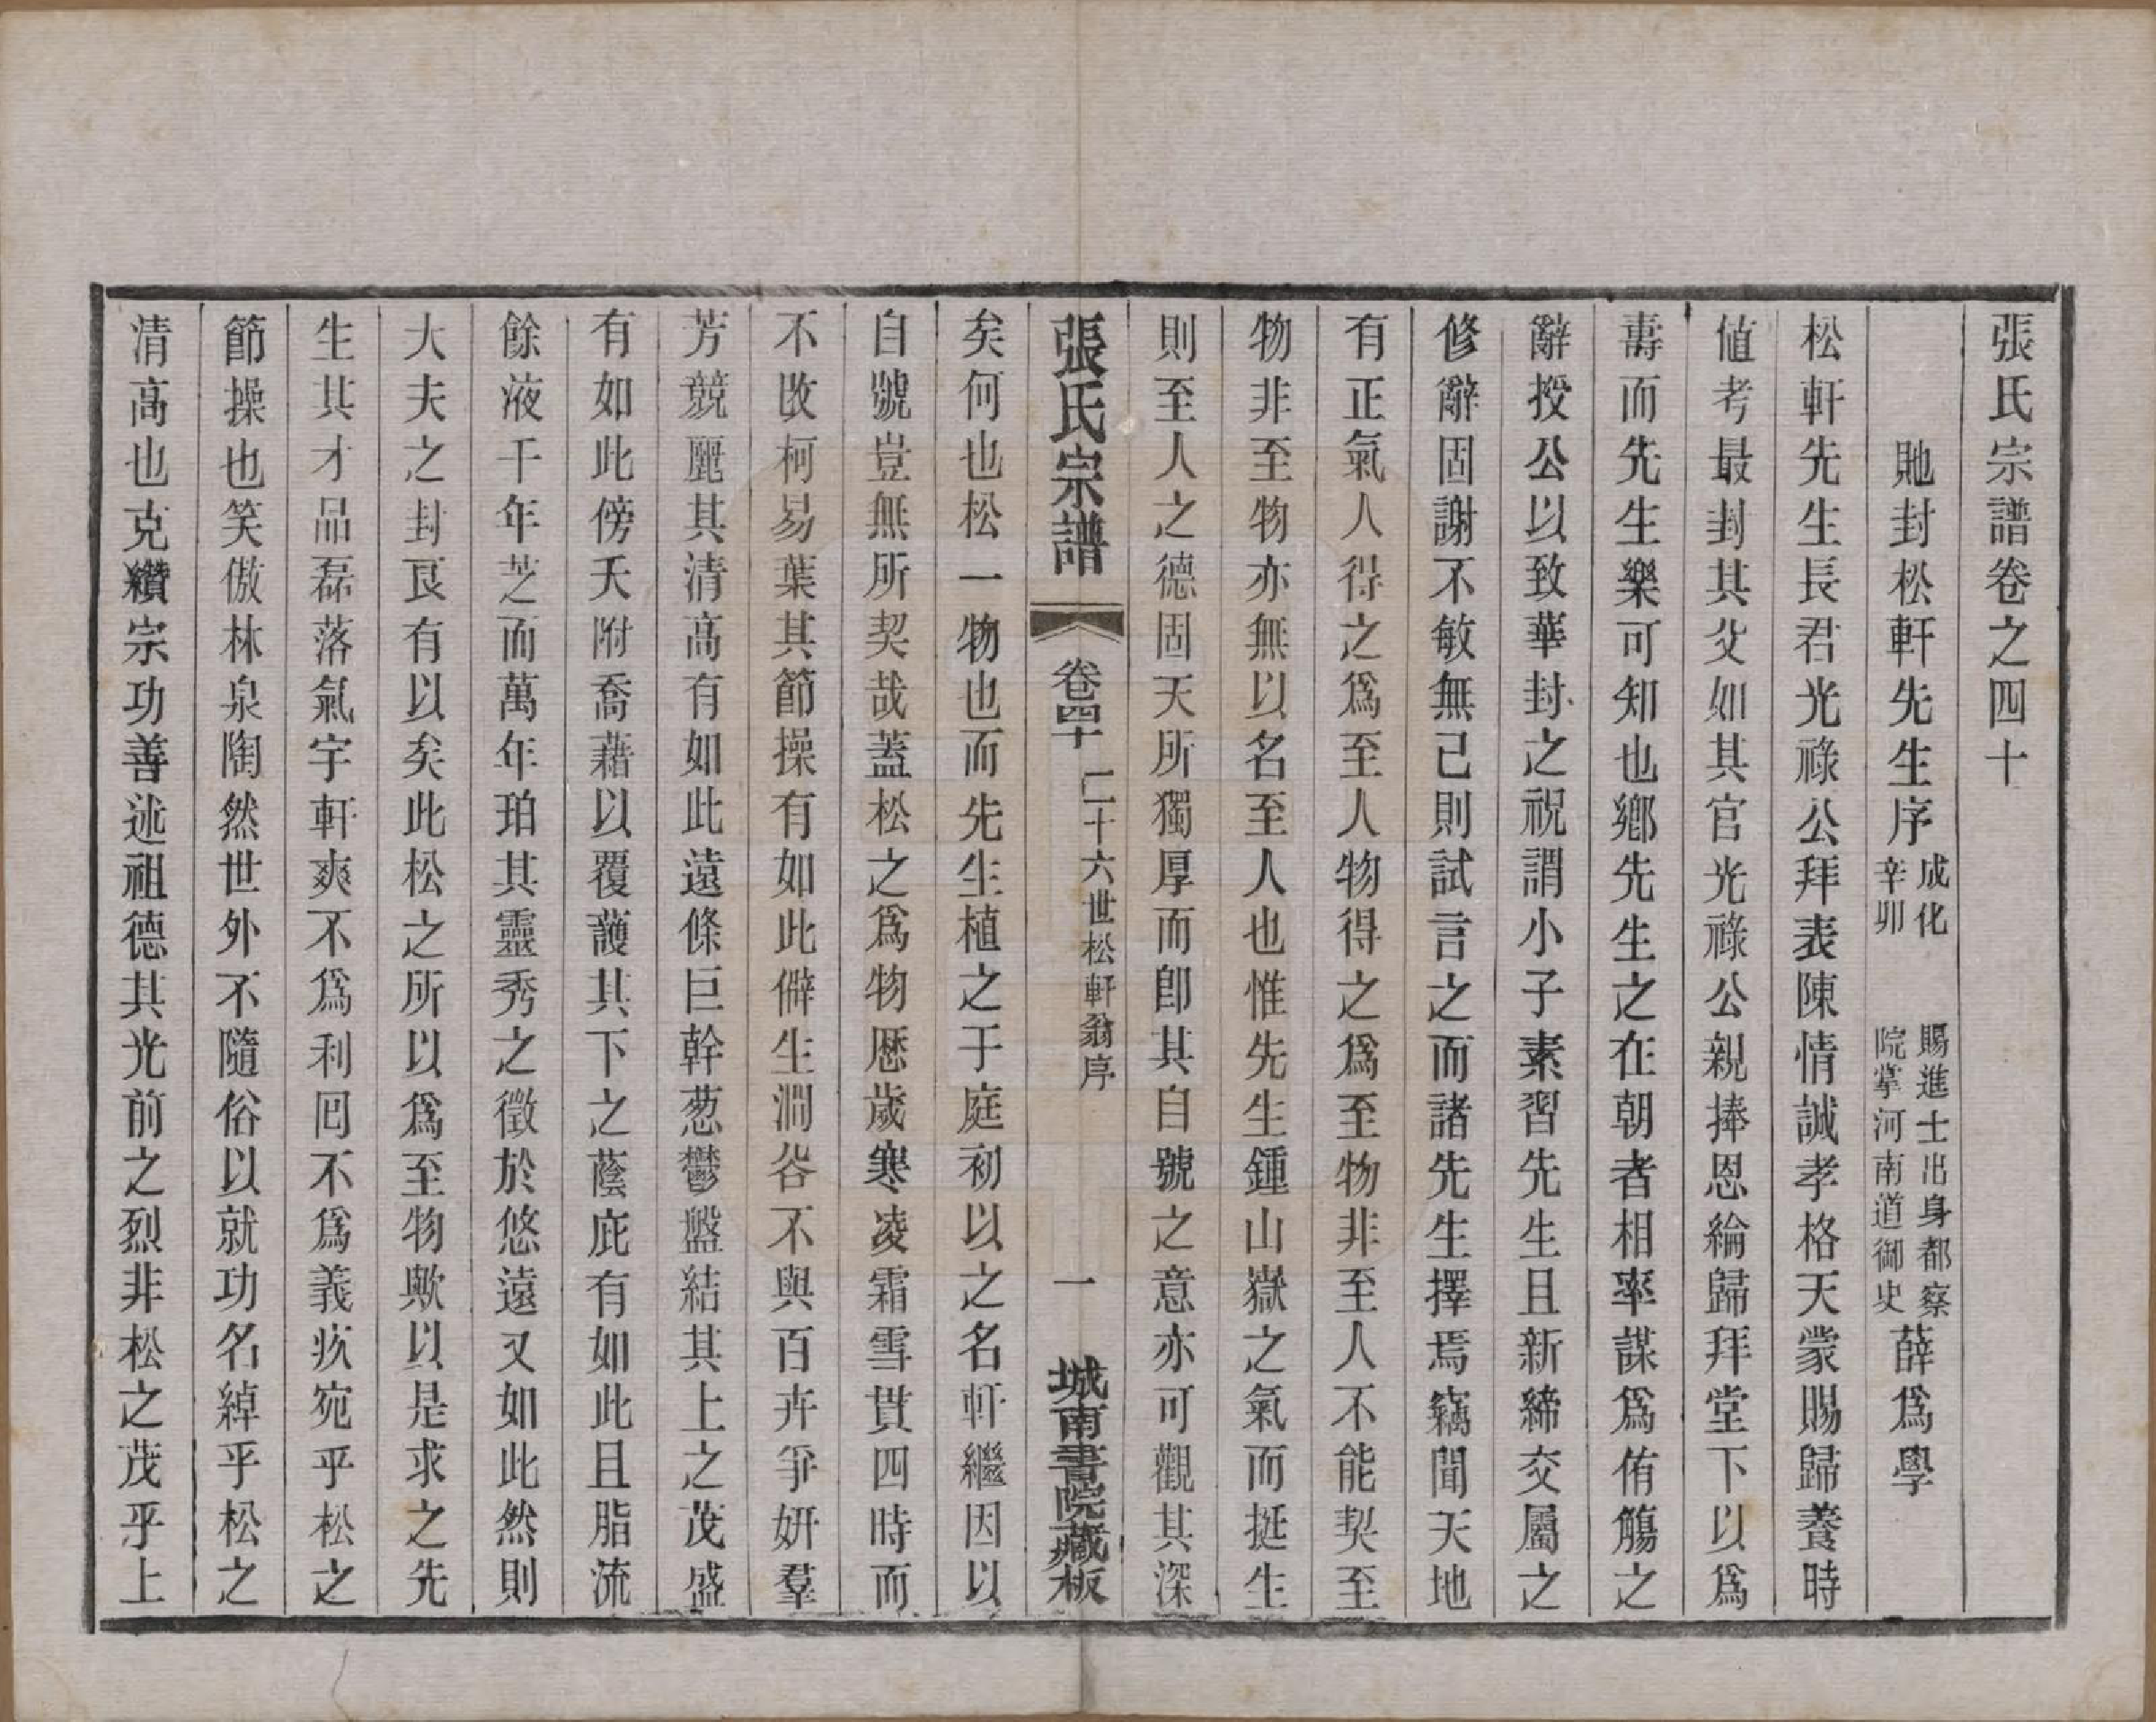 張氏宗譜卷之四十
貤封松軒先生序
成化
辛卯
賜進士出身都察
院掌河南道御史
薛為學
松軒先生長君光祿公拜表陳情誠孝格天蒙賜歸養時
值考最封其父如其官光祿公親捧恩綸歸拜堂下以爲
壽而先生樂可知也鄉先生之在朝者相率謀爲侑觴之
辭授公以致華封之祝謂小子素習先生且新締交屬之
修辭固謝不敏無已則試言之而諸先生擇焉竊聞天地
有正氣人得之爲至人物得之爲至物非至人不能契至
物非至物亦無以名至人也惟先生鍾山嶽之氣而挺生
則至人之德固天所獨厚而卽其自號之意亦可觀其深
張氏宗譜
卷四十
二十六世松軒翁序
一
城南書院藏板
矣何也松一物也而先生植之于庭初以之名軒繼因以
自號豈無所契哉蓋松之爲物歷歲寒凌霜雪貫四時而
不改柯易葉其節操有如此僻生澗谷不與百卉爭妍羣
芳競麗其清高有如此遠條巨幹葱鬱盤結其上之茂盛
有如此傍夭附喬藉以覆護其下之蔭庇有如此且脂流
餘液千年芝而萬年珀其靈秀之徵於悠遠又如此然則
大夫之封良有以矣此松之所以爲至物歟以是求之先
生其才品磊落氣宇軒爽不爲利囘不爲義疚宛乎松之
節操也笑傲林泉陶然世外不隨俗以就功名綽乎松之
清高也克纘宗功善述祖德其光前之烈非松之茂乎上